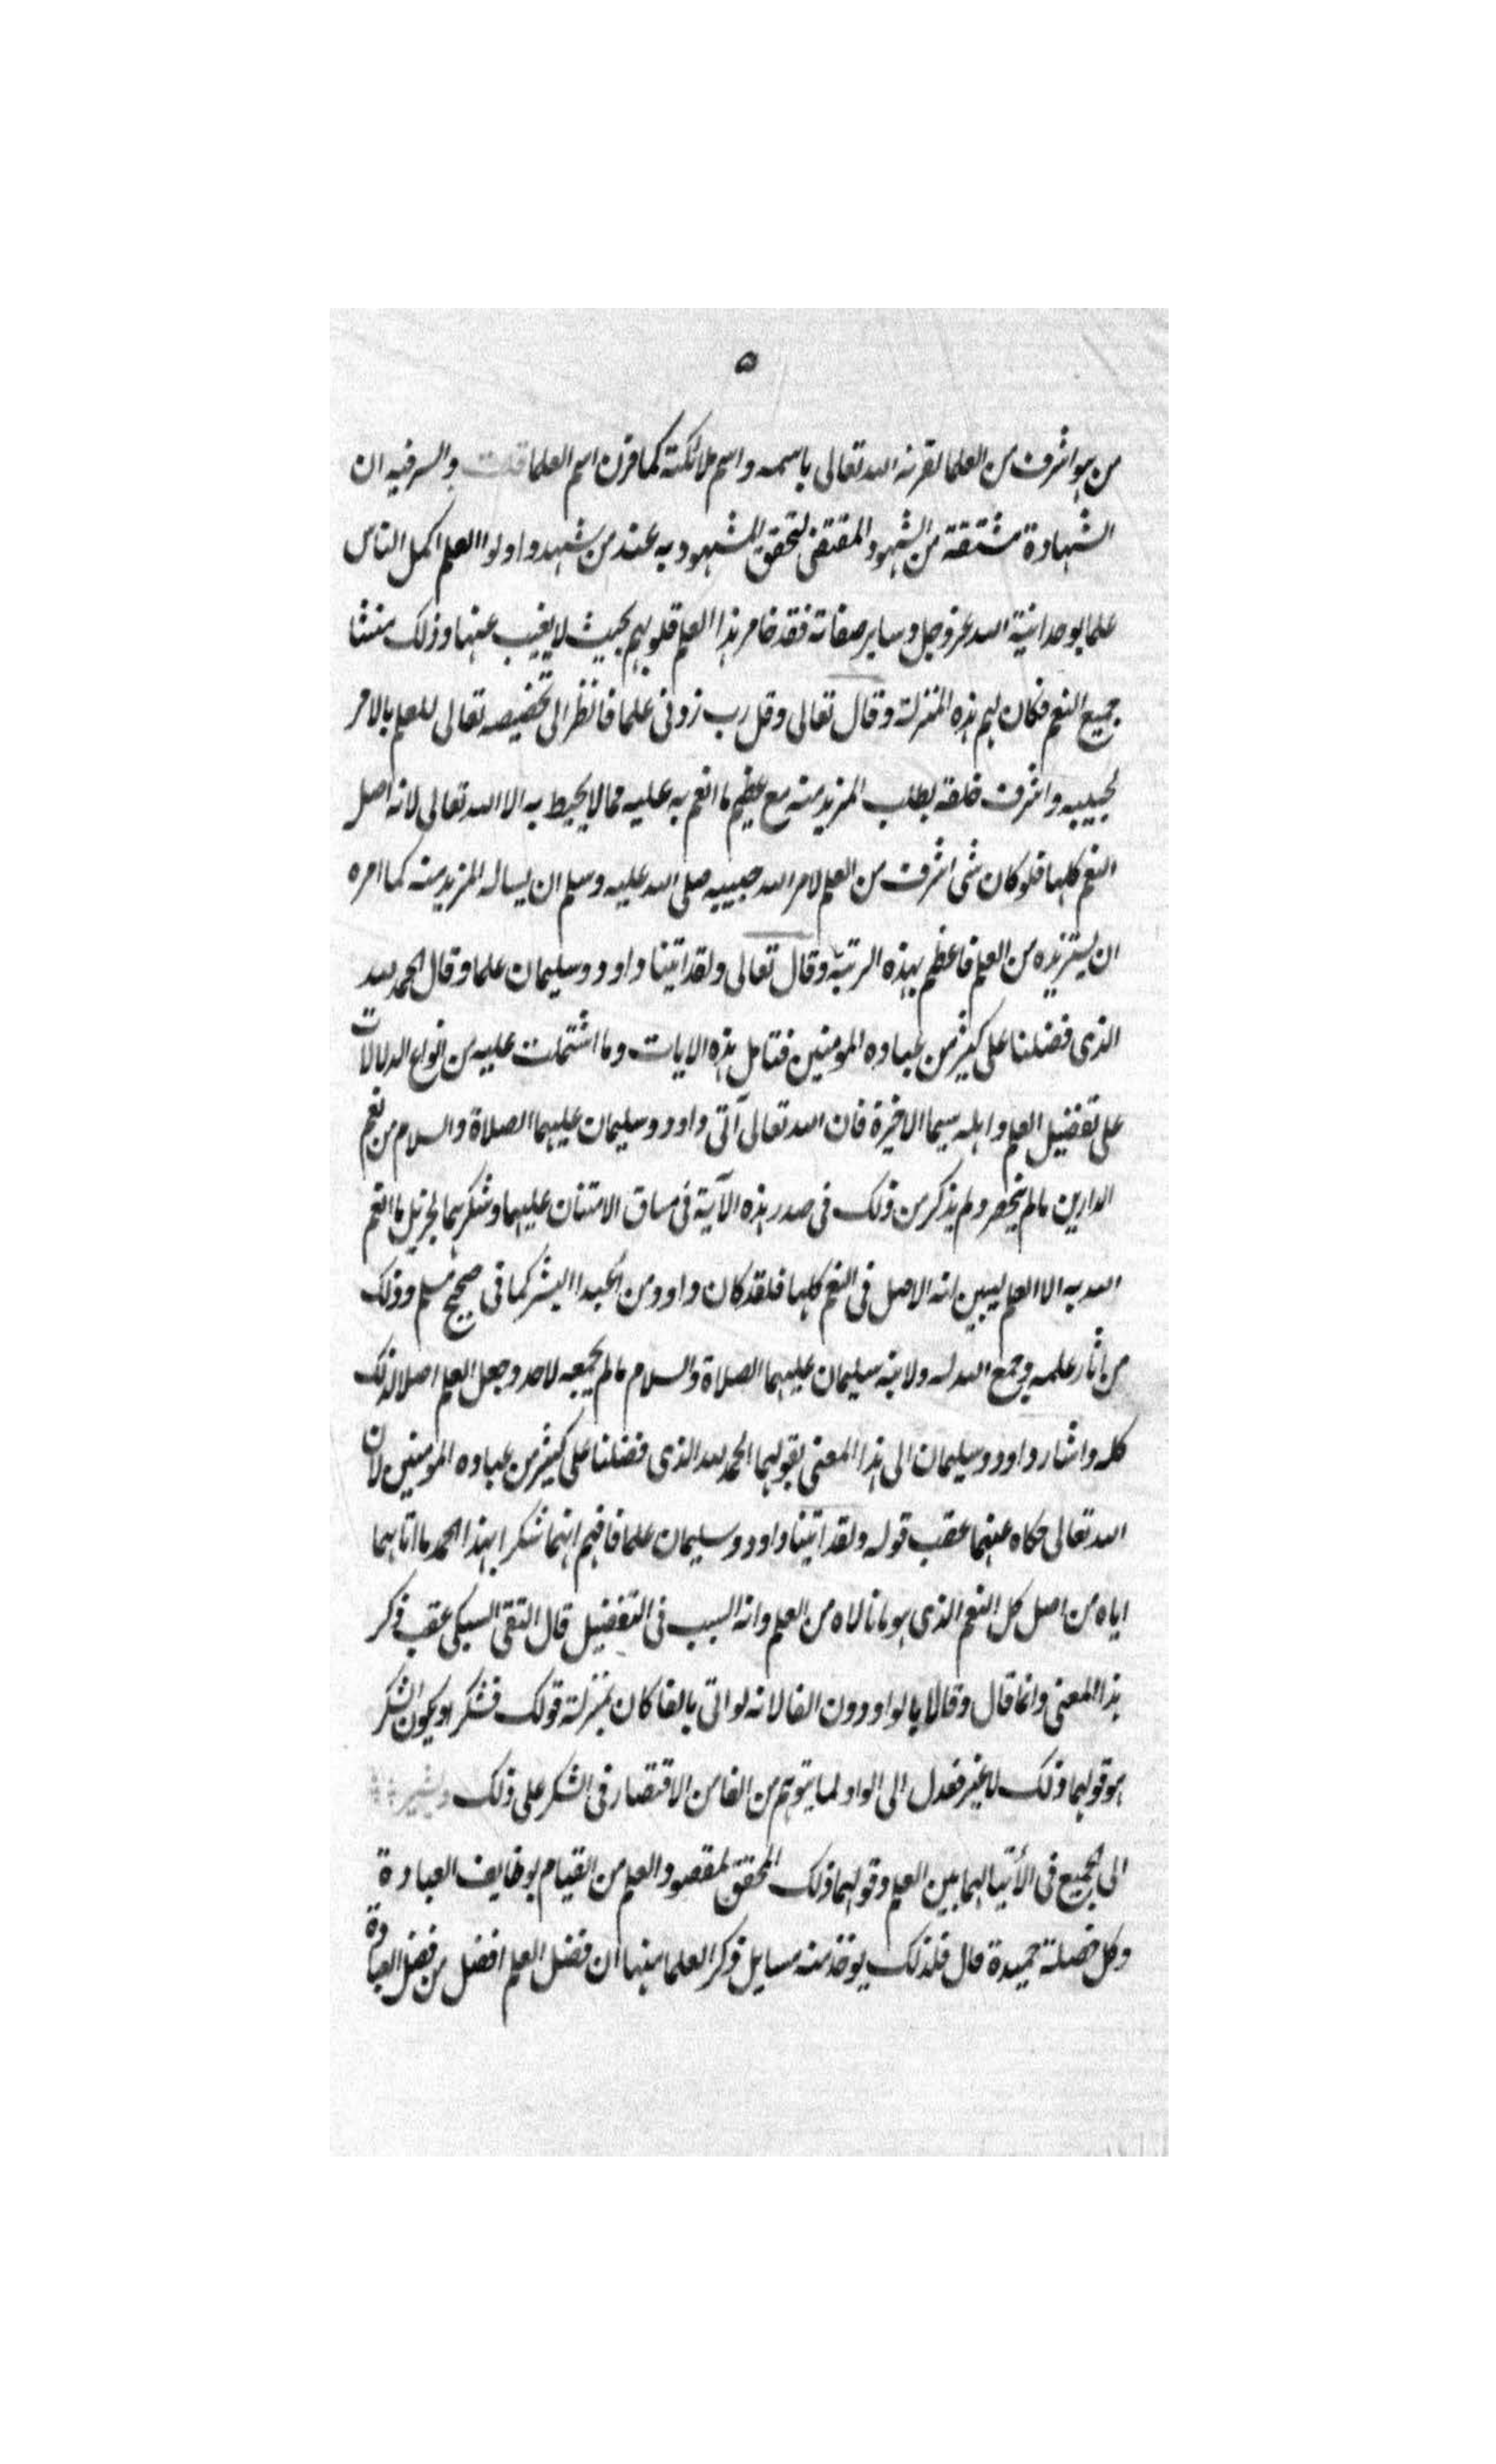 ٥
من هو اشرف من العلما لقرنه الله تعالى باسمه واسم ملائكته كما قرن اسم العلما قلت والسر فيه ان
الشهادة مشتقة من الشهود المقتضى لتحقق المشهود به عند من شهد واولوا العلم اكمل الناس
علما بوحدانية الله عز وجل وساير صفاته فقد خامر هذا العلم قلوبهم بحيث لا يغيب عنها وذلك منشا
جميع النعم فكان لهم هذه المنزلة وقال تعالى وقل رب زدنى علما فانظر الى تخصيصه تعالى للعلم بالامر
لحبيبه واشرف خلقه بطلب المزيد منه مع عظيم ما انعم به عليه مما لا يحيط به الا الله تعالى لانه اصل
النعم كلها فلو كان شى اشرف من العلم لامر الله حبيبه صلى الله عليه وسلم ان يساله المزيد منه كما امره
ان يستزيده من العلم فاعظم بهذه الرتبة وقال تعالى ولقد اتينا داود وسليمان علما وقال الحمد لله
الذى فضلنا على كثير من عباده المومنين فتامل هذه الايات وما اشتملت عليه من انواع الدلالات
على تفضيل العلم واهله سيما الاخيرة فان الله تعالى آتى داود وسليمان عليهما الصلاة والسلام من نعم
الدارين مالم ينحصر ولم يذكر من ذلك فى صدر هذه الآية فى مساق الامتنان عليهما وشكرهما لجزيل ما انعم
الله به الا العلم ليبين انه الاصل فى النعم كلها فلقد كان داود من اعبد البشر كما فى صحيح مسلم وذلك
من اثار علمه وجمع الله له ولابنه سليمان عليهما الصلاة والسلام مالم يجمعه لاحد وجعل العلم اصلا لذلك
كله واشار داود وسليمان الى هذا المعنى بقولهما الحمد لله الذى فضلنا على كثير من عباده المومنين لان
الله تعالى حكاه عنهما عقب قوله ولقد اتينا داود وسليمان علما فافهم انهما شكرا بهذا الحمد ما اتاهما
اياه من اصل كل النعم الذى هو ما نالاه من العلم وانه السبب فى التفضيل قال التقى السبكى عقب ذكر
هذا المعنى وانما قال وقالا بالواو دون الفا لانه لو اتى بالفا كان بمنزلة قولك فشكر او يكون الشكر
هو قولهما ذلك لا غير فعدل الى الواو لما يتوهم من الفا من الاقتصار فى الشكر على ذلك وليشير
الى الجميع فى الأتيا لهما بين العلم وقولهما ذلك المحقق لمقصود العلم من القيام بوظايف العبادة
وكل خصلة حميدة قال فلذلك يوخذ منه مسايل ذكر العلما منها ان فضل العلم افضل من فضل العبادة